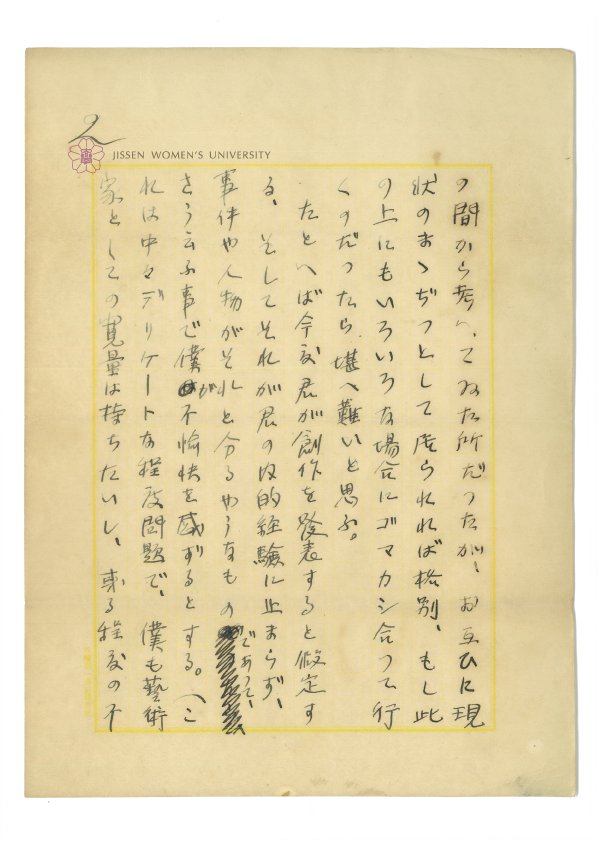 2
JISSEN WOMEN'S UNIVERSITY
の間から考へてゐた所だつたが、お互ひに現
状のまゝぢつとして居られれば格別、もし此
の上にもいろいろな場合にゴマカシ合つて行
くのだつたら堪へ難いと思ふ。
たとへば今度君が創作を発表すると仮定す
る、そしてそれが君の内的経験に止まらず、
事件や人物がそれと分るやうなもの であつて、
さう云ふ事で僕が不愉快を感ずるとする。（こ
れは中々デリケートな程度問題で、僕も藝術
家としての寛量は持ちたいし、或る程度の不